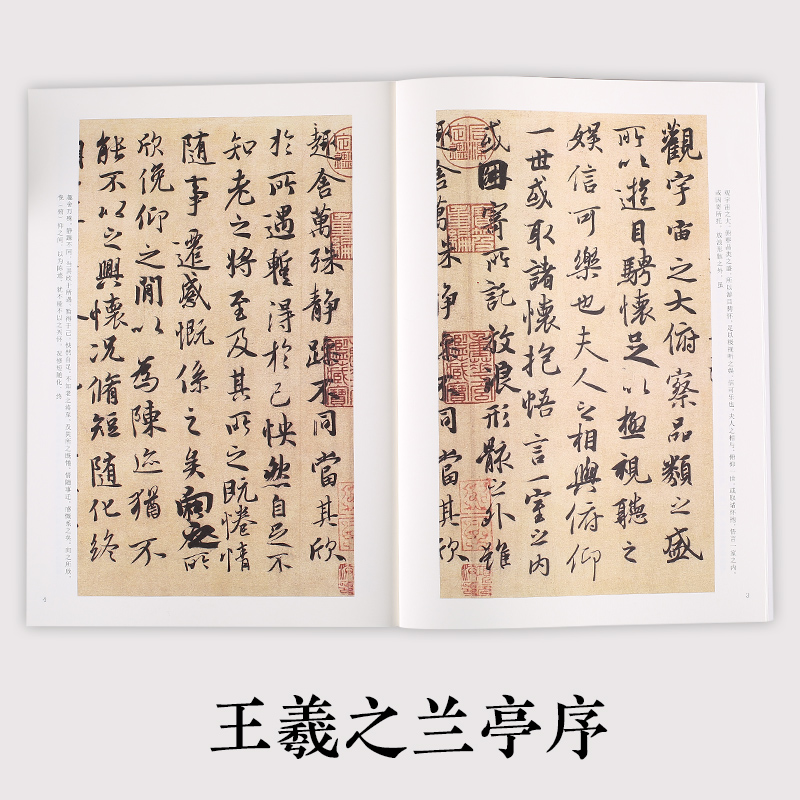 觀宇宙之大俯察品類之盛
所以遊目騁懷足以極視聽之
娛信可樂也夫人之相與俯仰
一世或取諸懷抱悟言一室之內
或因寄所託放浪形骸之外雖
趣舍萬殊静躁不同當其欣
趣舍萬殊静躁不同當其欣
於所遇暫得於己怏然自足不
知老之將至及其所之既惓情
随事遷感慨係之矣向之所
欣俛仰之閒以為陳迹猶不
能不以之興懷況脩短随化終
王羲之兰亭序